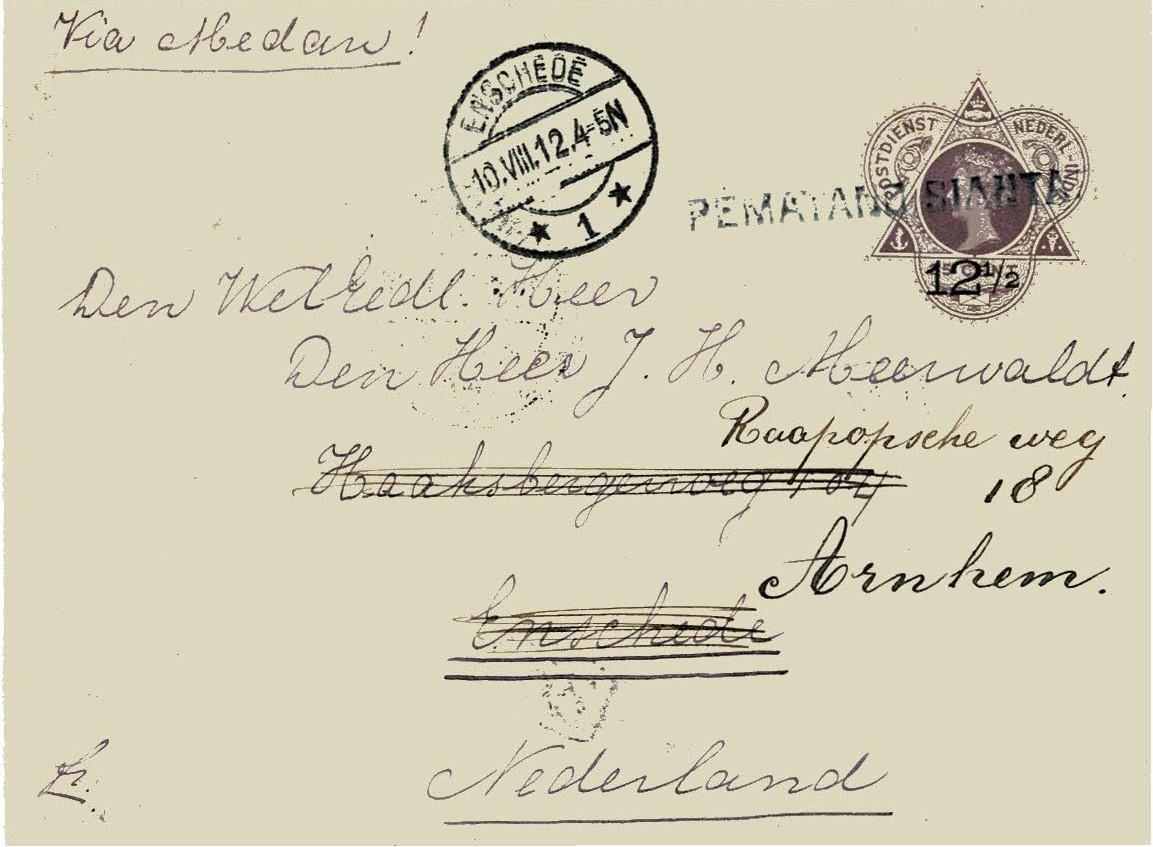 Via Medan!
ENSCHEDE
10.VIII.12.4-5N
1
POSTDIENST NEDERL-INDI
PEMATANG SIANTA
12½
Den WelEedl. Heer
Den Heer J. H. Meerwaldt
Raapopsche weg
Haaksbergerweg 104
18
Arnhem.
Enschede
Nederland